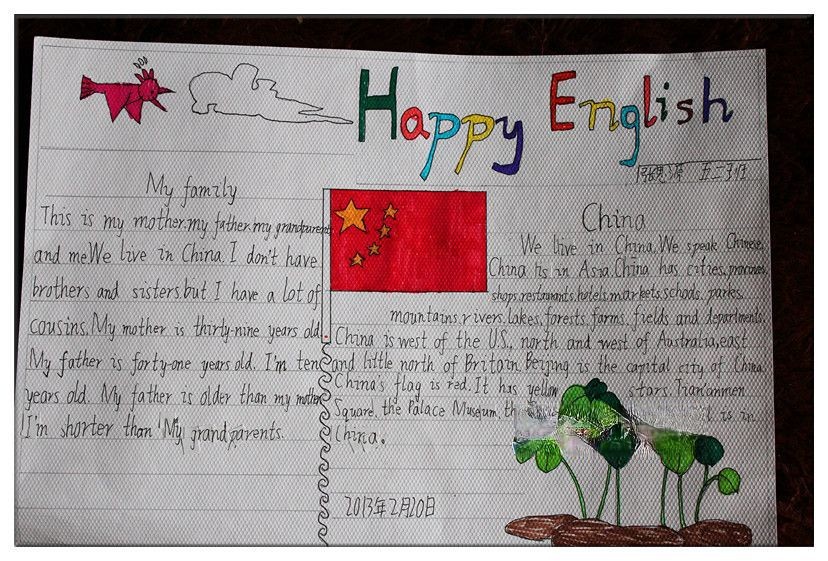 Happy English
五二班
My family
This is my mother.my father.my grandparents
and me.We live in China.I don't have
brothers and sisters.but I have a lot of
cousins.My mother is thirty-nine years old.
My father is forty-one years old. I'm ten
years old. My father is older than my mother
I'm shorter than My grandparents.
China
We live in China.We speak Chinese.
China is in Asia.China has cities.provinces.
shops.restaurants.hotels.markets.schools.parks.
mountains.rivers.lakes.forests.farms.fields and departments.
China is west of the U.S., north and west of Australia,east
and little north of Britain. Beijing is the capital city of China.
China's flag is red.It has yellow stars.Tian'anmen
Square, the Palace Museum, th is in
China.
2013年2月20日